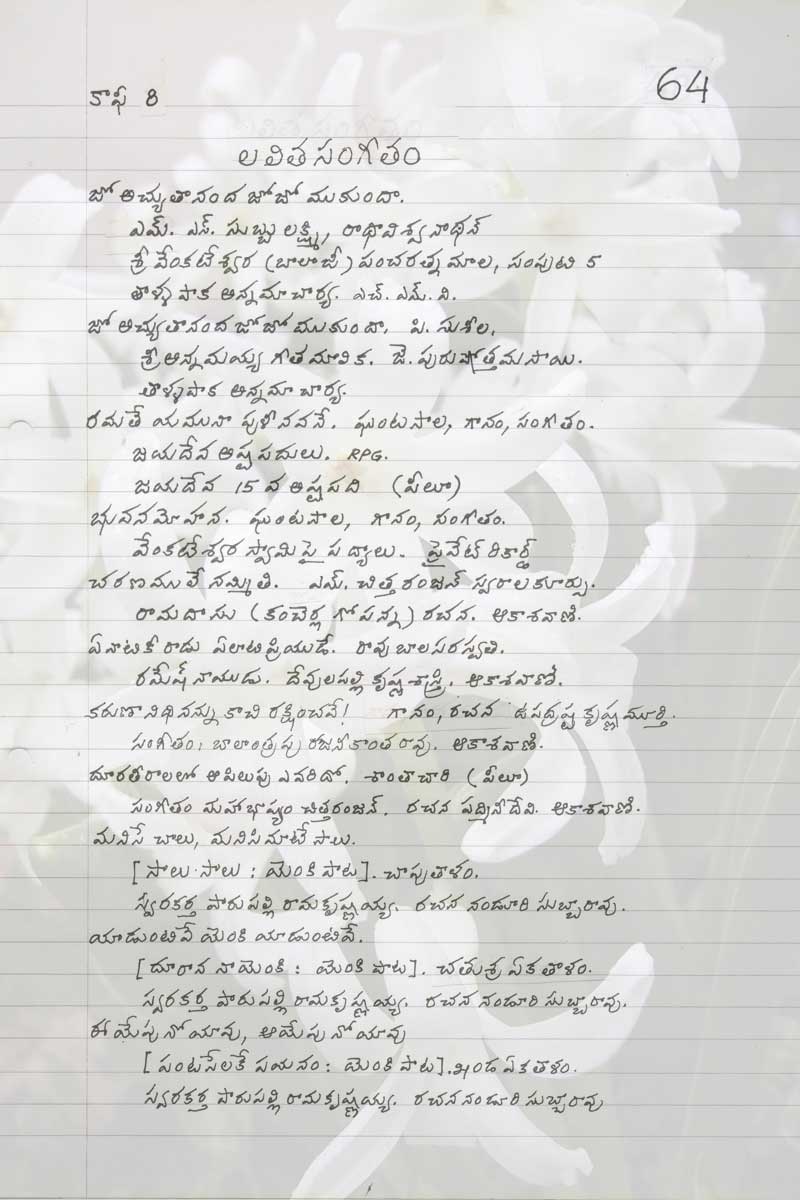 కాఫీ 8
64
లలిత సంగీతం
జో అచ్యుతానంద జోజో ముకుందా.
ఎమ్. ఎస్. సుబ్బులక్ష్మి, రాధావిశ్వనాథన్
శ్రీ వేంకటేశ్వర (బాలాజీ) పంచరత్నమాల, సంపుటి 5
తాళ్ళపాక అన్నమాచార్య. ఎచ్. ఎమ్. వి.
జో అచ్యుతానంద జోజో ముకుందా, పి. సుశీల.
శ్రీ అన్నమయ్య గీతమాలిక. జె. పురుషోత్తమసాయి.
తాళ్ళపాక అన్నమాచార్య.
రమతే యమునా పుళినవనే. ఘంటసాల, గానం, సంగీతం.
జయదేవ అష్టపదులు. RPG.
జయదేవ 15 వ అష్టపది (పీలూ)
భువనమోహన. ఘంటసాల, గానం, సంగీతం.
వేంకటేశ్వరస్వామిపై పద్యాలు. ప్రైవేట్ రికార్డ్
చరణములే నమ్మితి. ఎమ్. చిత్తరంజన్ స్వరాలకూర్పు.
రామదాసు (కంచెర్ల గోపన్న) రచన. ఆకాశవాణి.
ఏనాటికీ రాడు ఏలాటి ప్రియుడే. రావు బాలసరస్వతి.
రమేష్ నాయుడు. దేవులపల్లి కృష్ణశాస్త్రి. ఆకాశవాణి.
కరుణానిధి నన్ను కాచి రక్షించవే! గానం, రచన ఉపద్రష్ట కృష్ణమూర్తి.
సంగీతం: బాలాంత్రపు రజనీకాంతరావు. ఆకాశవాణి.
దూరతీరాలలో ఆపిలుపు ఎవరిదో. శాంతాచారి (పీలూ)
సంగీతం మహాభాష్యం చిత్తరంజన్. రచన పద్మినీదేవి. ఆకాశవాణి.
మనిసే చాలు, మనిసిమాటే సాలు.
[సాలు సాలు : యెంకి పాట]. చాపుతాళం.
స్వరకర్త పారుపల్లి రామకృష్ణయ్య. రచన నండూరి సుబ్బారావు.
యాడుంటివే యెంకి యాడుంటివే.
[దూరాన నాయెంకి : యెంకి పాట]. చతుశ్ర ఏకతాళం.
స్వరకర్త పారుపల్లి రామకృష్ణయ్య. రచన నండూరి సుబ్బారావు.
ఈ యేపు నోయావు, ఆ యేపు నోయావు
[పంటసేలకే పయనం: యెంకి పాట]. ఖండ ఏకతాళం.
స్వరకర్త పారుపల్లి రామకృష్ణయ్య. రచన నండూరి సుబ్బారావు